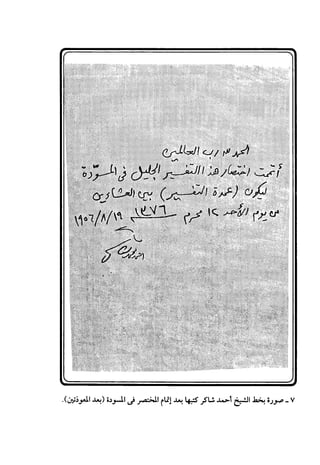 الحمد لله رب العالمين
أتممت اختصار هذا التفسير الجليل فى المسوّدة
ليكون (عمدة التفسير) بين العشاءين
من يوم الأحد ١٢ محرم ١٣٧٦ ١٩٥٦/٨/١٩
كتبه
أحمد محمد شاكر
٧ ـ صورة بخط الشيخ أحمد شاكر كتبها بعد إتمام المختصر فى المسودة (بعد المعوذتين).